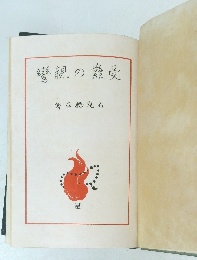 受難の親鸞
石丸梧平著